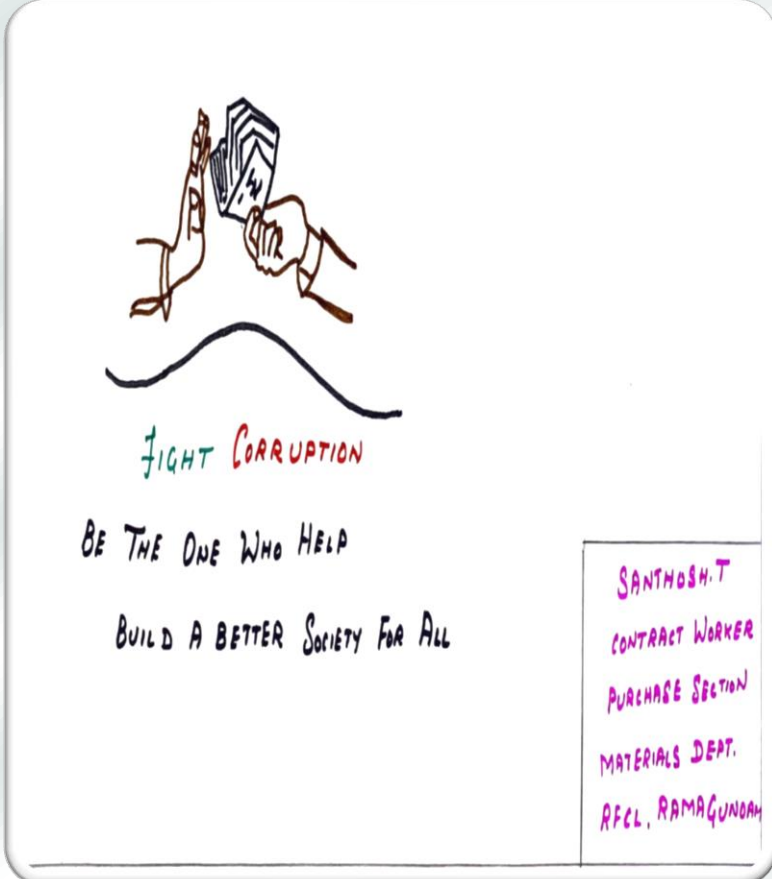 FIGHT CORRUPTION
BE THE ONE WHO HELP
BUILD A BETTER SOCIETY FOR ALL
SANTHOSH.T
CONTRACT WORKER
PURCHASE SECTION
MATERIALS DEPT.
RFCL, RAMAGUNDAM